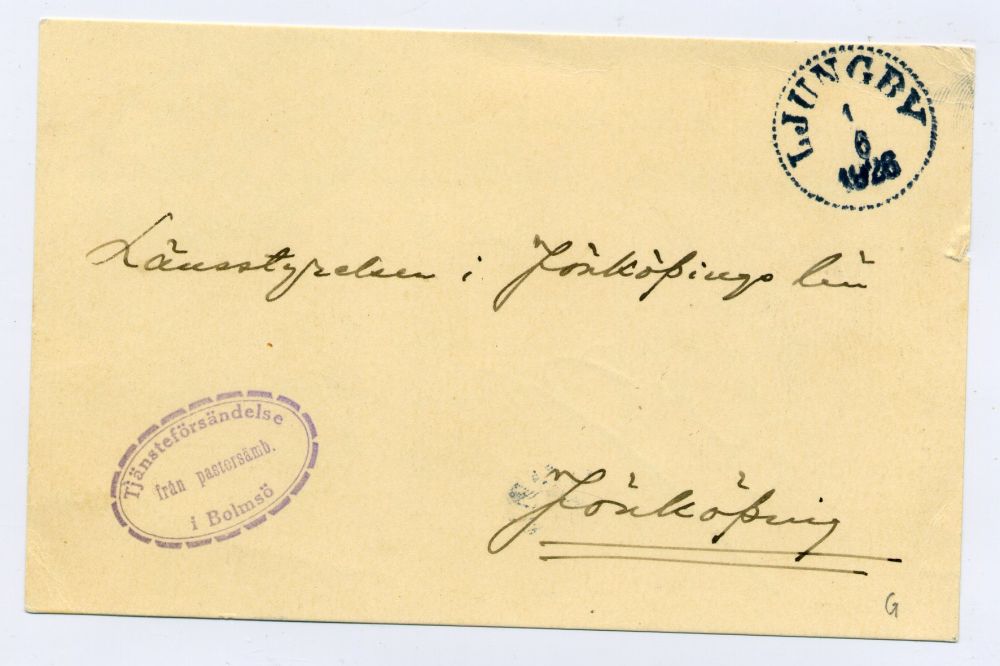 LJUNGBY
1
6
Länsstyrelsen i Jönköpings län
Tjänsteförsändelse
från pastorsämb.
i Bolmsö
Jönköping
G